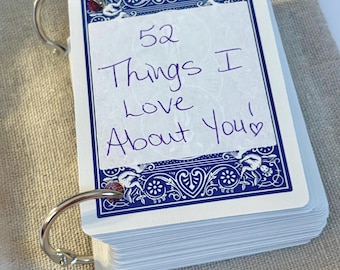 52
Things I
Love
About You!